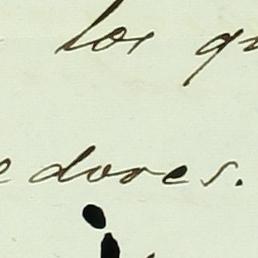 los qu
edores.